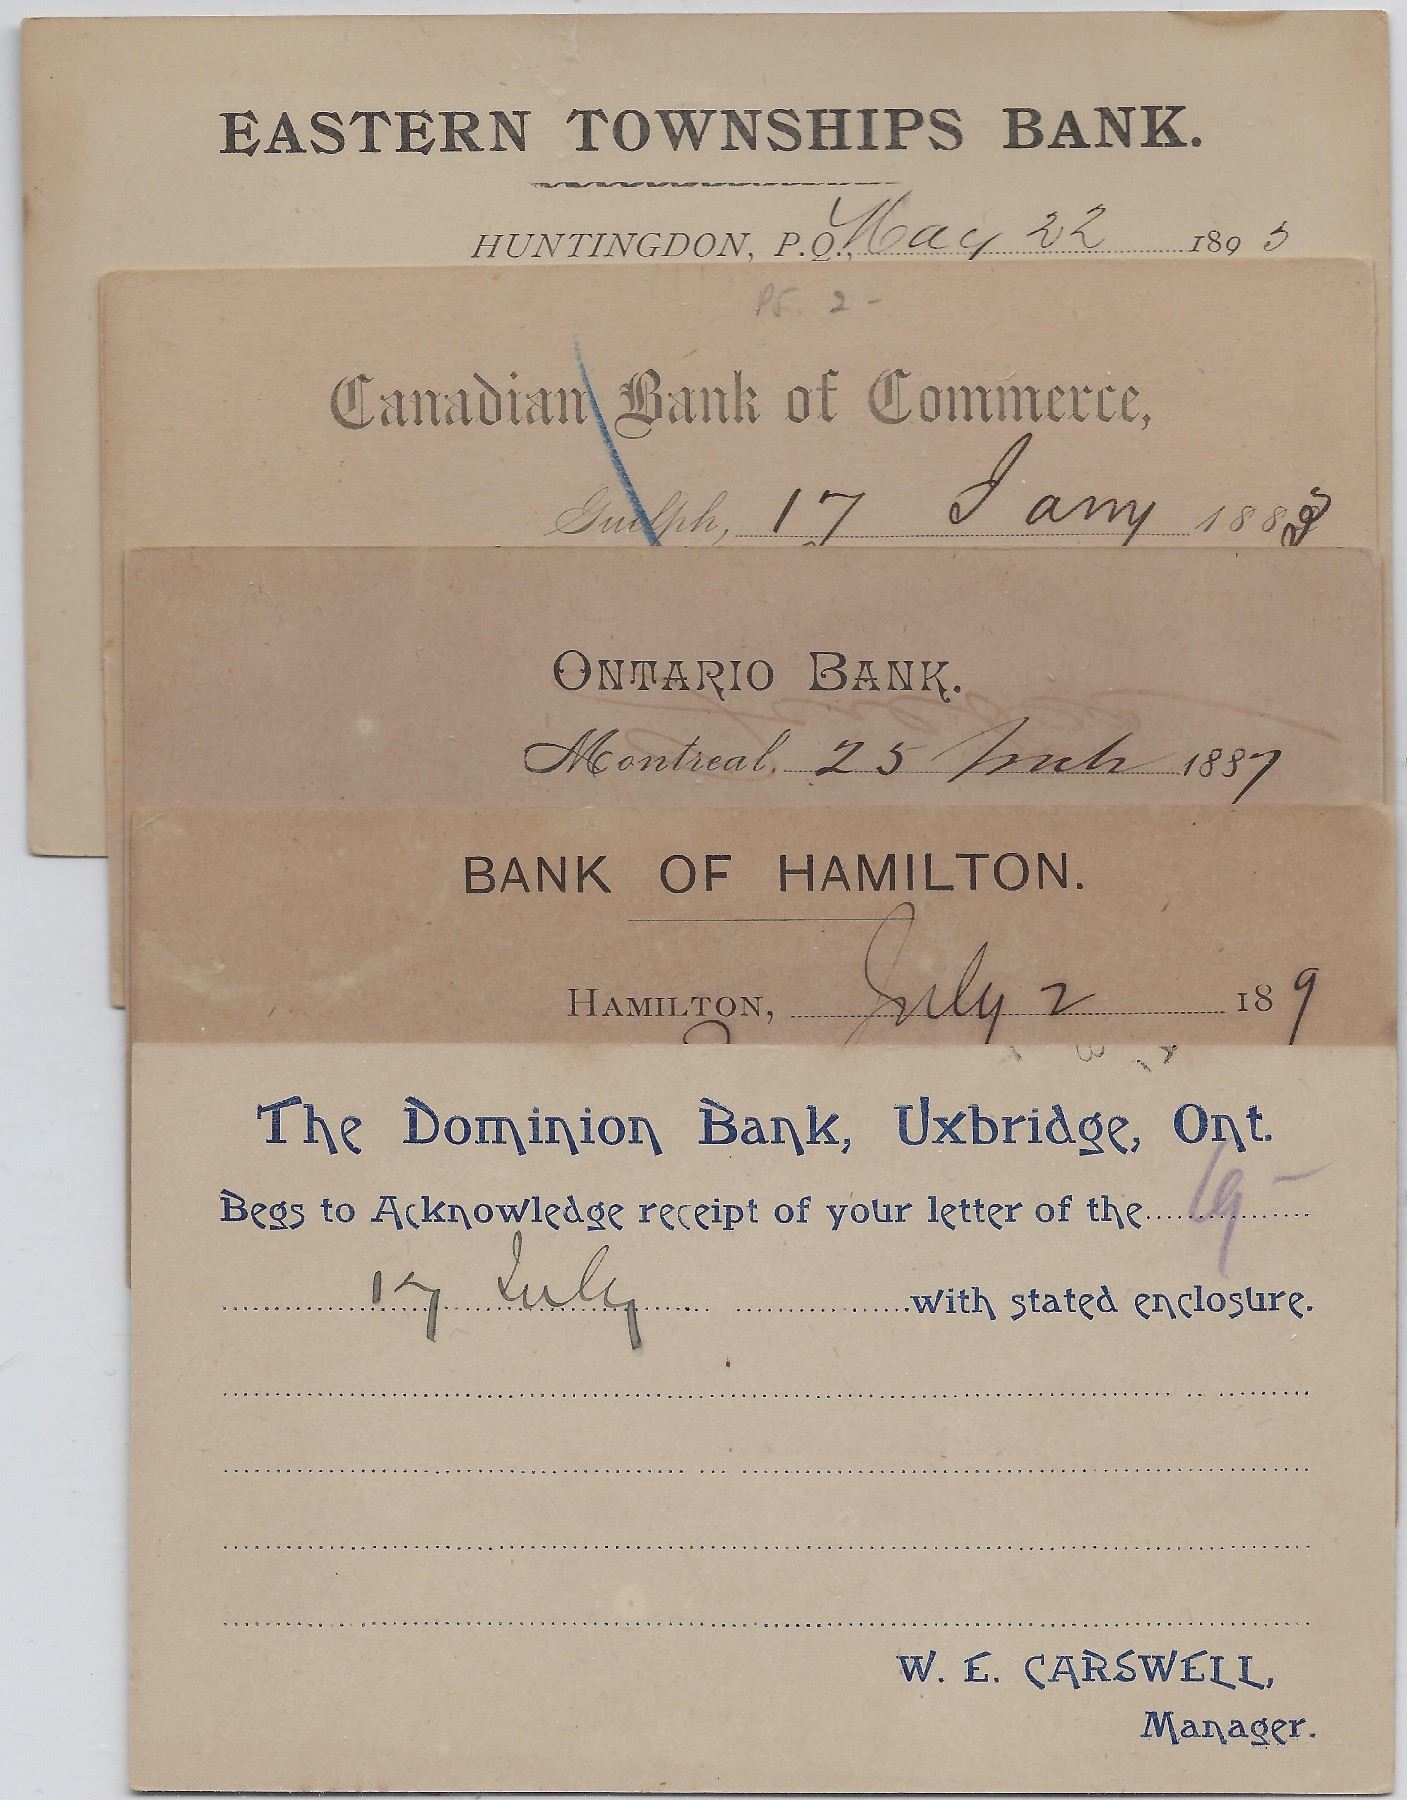 EASTERN TOWNSHIPS BANK.
HUNTINGDON, P.Q., May 22 1895
P5. 2 -
Canadian Bank of Commerce,
Guelph, 17 Jany 188
ONTARIO BANK.
Montreal, 25 Mch 1887
BANK OF HAMILTON.
HAMILTON, July 2 189
The Dominion Bank, Uxbridge, Ont.
Begs to Acknowledge receipt of your letter of the 19-
17 July with stated enclosure.
W. E. CARSWELL,
Manager.